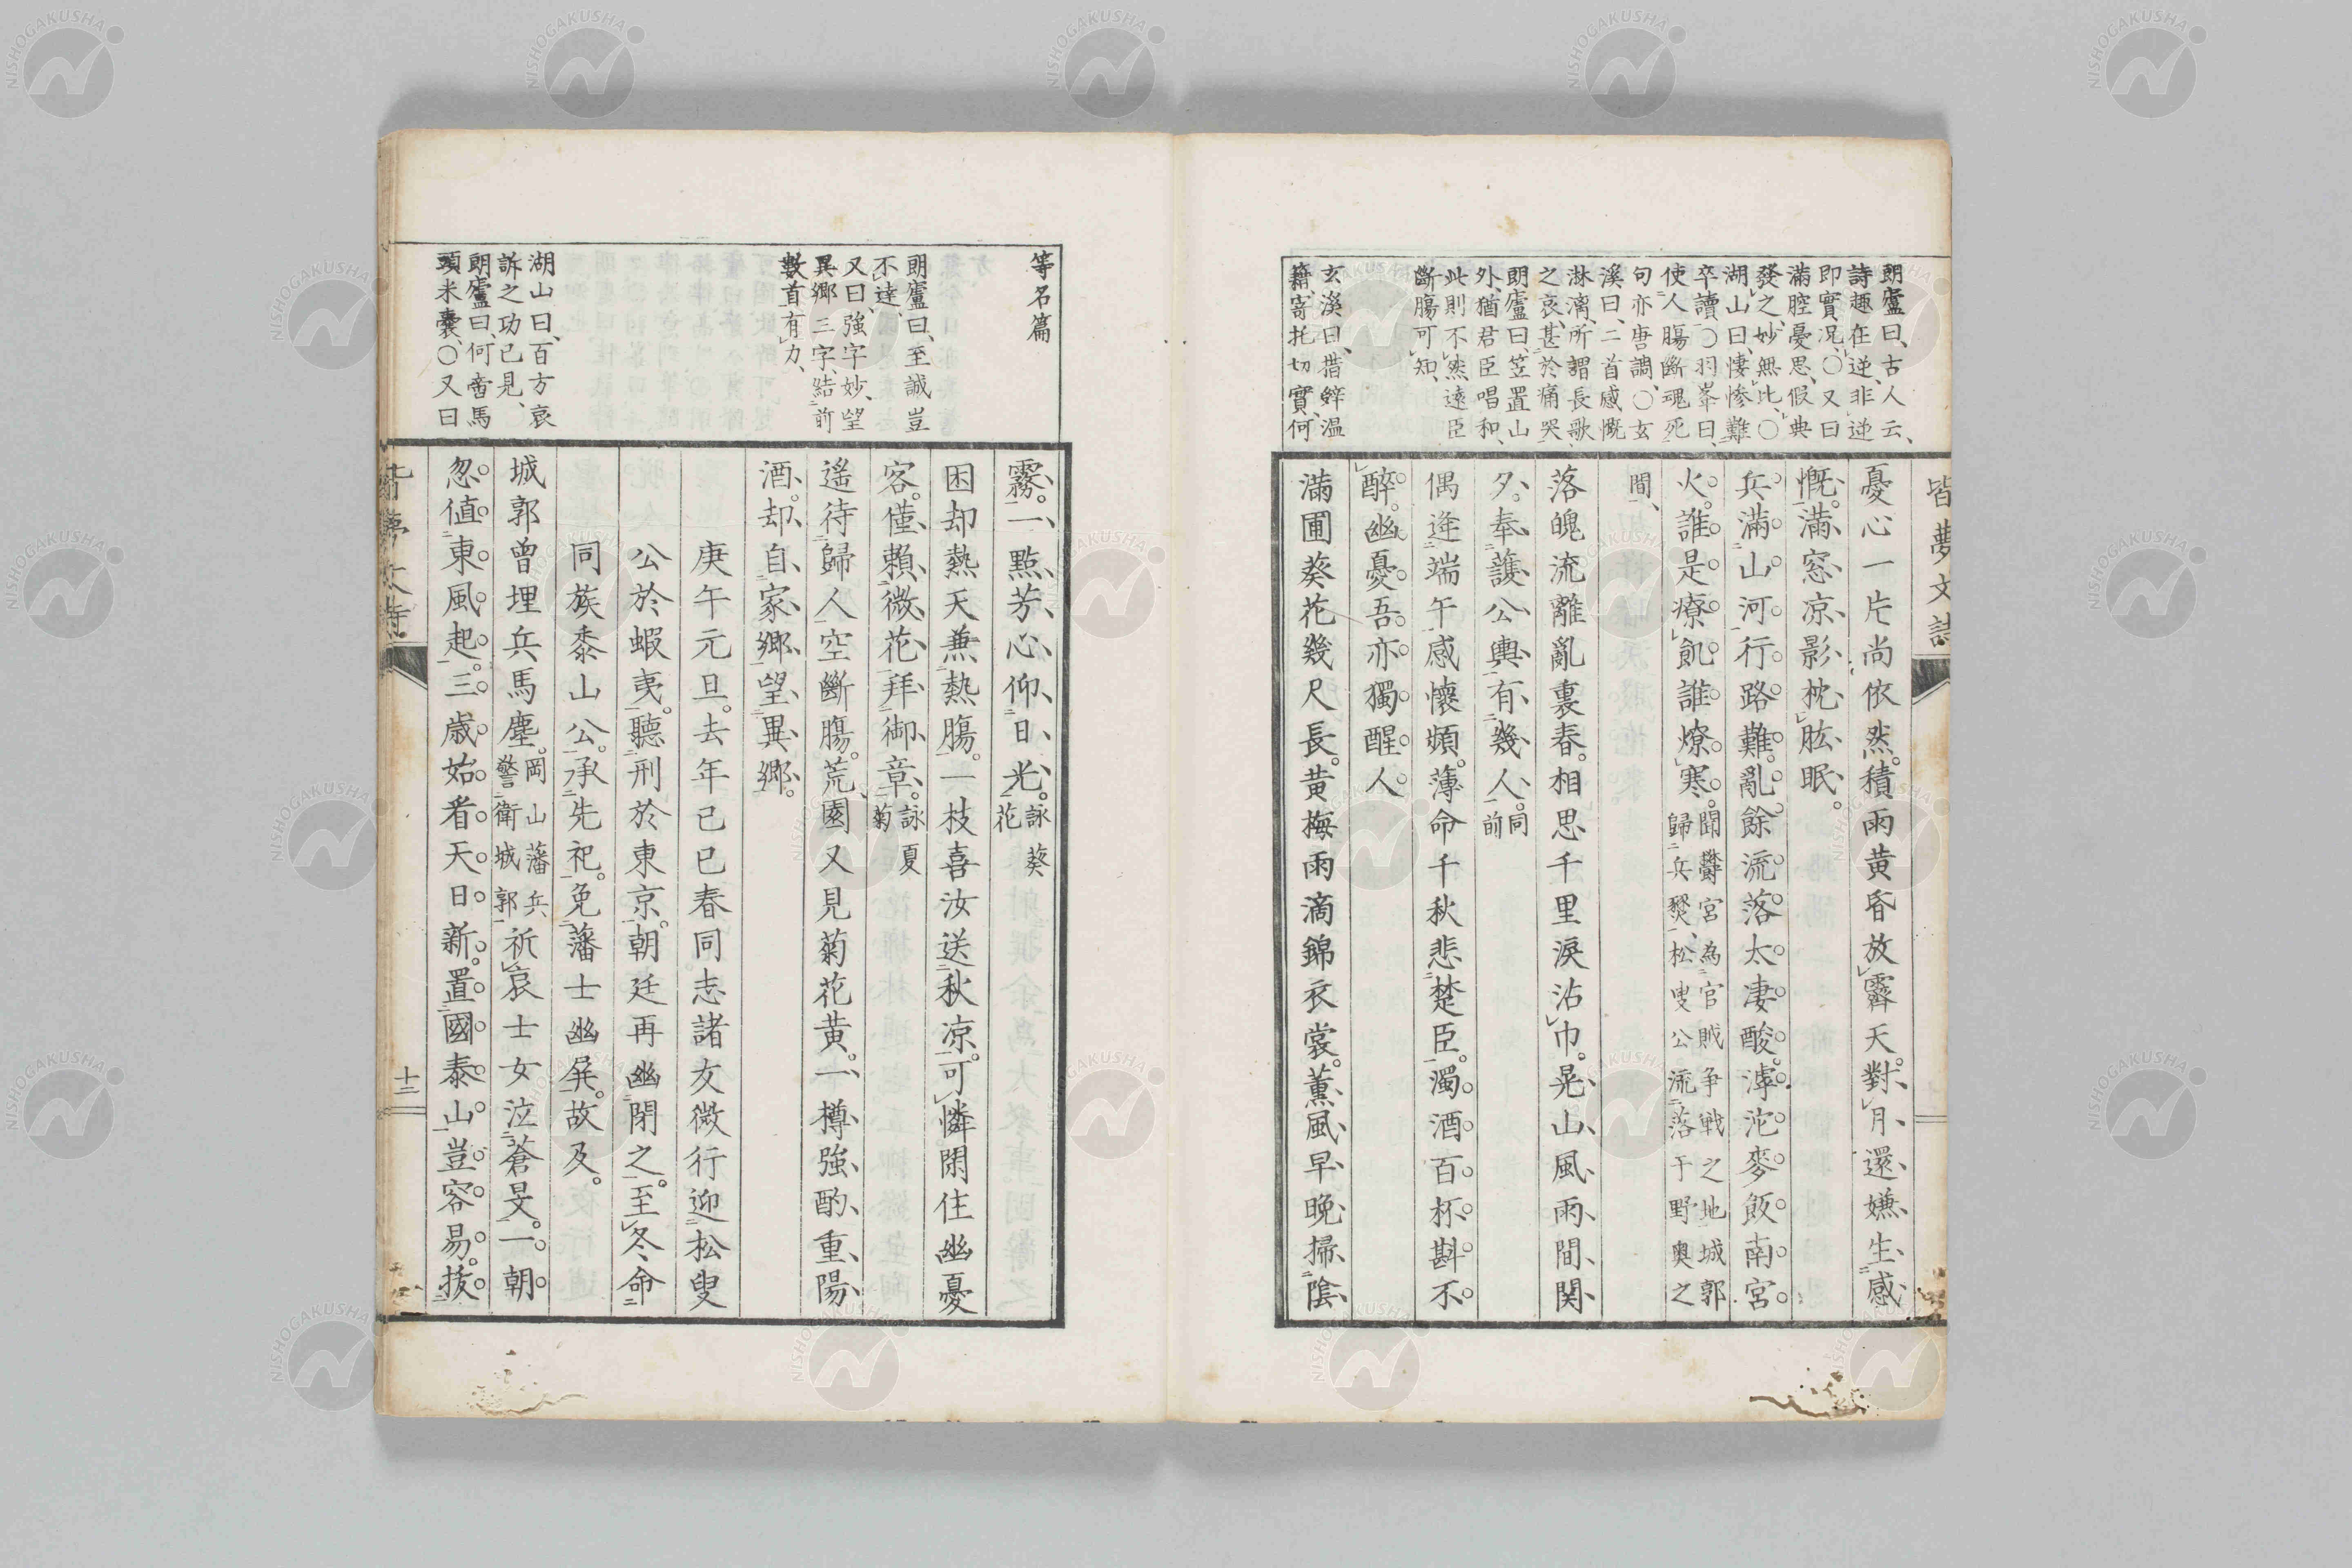 皆夢文詩
朗廬曰、古人云、
詩趣在逆、非逆
即實況、○又曰
滿腔憂思、假典
發之、妙無比、○
湖山曰、悽慘難
卒讀、○羽峯曰、
使人膓斷魂死
句亦唐調、○玄
溪曰、二首感慨
淋漓、所謂長歌
之哀、甚於痛哭、
朗廬曰、笠置山
外、猶君臣唱和、
此則不然、遠臣
斷膓可知、
玄溪曰、借鋅温
籍、寄托切實、何
憂心一片尚依然。積雨黄昏放霽天。對月還嫌生感
慨。滿窓凉影枕肱眠。
兵滿山河行路難。亂餘流落太凄酸。滹沱麥飯南宮
火。誰是療飢誰燎寒。聞欝宮為官賊争戦之地城郭
歸兵燹、松叟公流落于野奥之
間、
落魄流離亂裏春。相思千里淚沾巾。晃山風雨間関
夕。奉護公輿有幾人。同
前
偶逢端午感懷頻。薄命千秋悲楚臣。濁酒百杯斟不
醉。幽憂吾亦獨醒人。
滿圃葵花幾尺長。黄梅雨滴錦衣裳。薫風早晚掃陰
等名篇
朗廬曰、至誠豈
不達、
又曰、強字妙、望
異郷三字、結前
數首有力、
湖山曰、百方哀
訴之功已見、
朗廬曰、何啻馬
頭米囊、○又曰
霧。一點芳心仰日光。詠葵
花
困却熱天兼熱膓。一枝喜汝送秋凉。可憐閑住幽憂
客。僅賴微花拜御章。詠夏
菊
遙待歸人空斷膓。荒園又見菊花黄。一樽強酌重陽
酒。却自家郷望異郷。
庚午元旦。去年己巳春同志諸友微行迎松叟
公於蝦夷。聽刑於東京。朝廷再幽閉之。至冬命
同族黍山公。承先祀。免藩士幽屏。故及。
城郭曾埋兵馬塵。岡山藩兵
警衛城郭
祈哀士女泣蒼旻。一朝
忽值東風起。三歳始看天日新。置國泰山豈容易。拔
十三